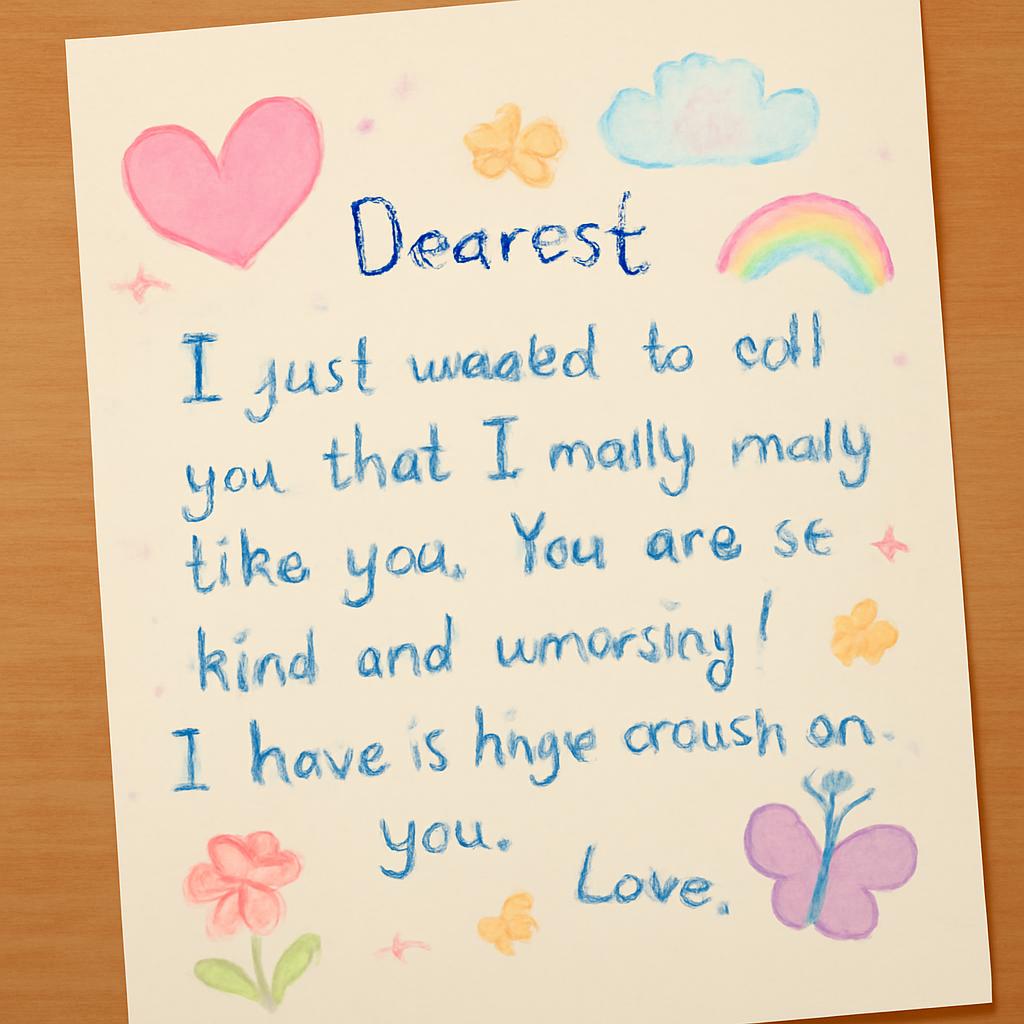 Dearest
I just to coll
you that I mally maly
tike you. You are se
kind and umorsiny!
I have is hnge croush on
you.
Love.